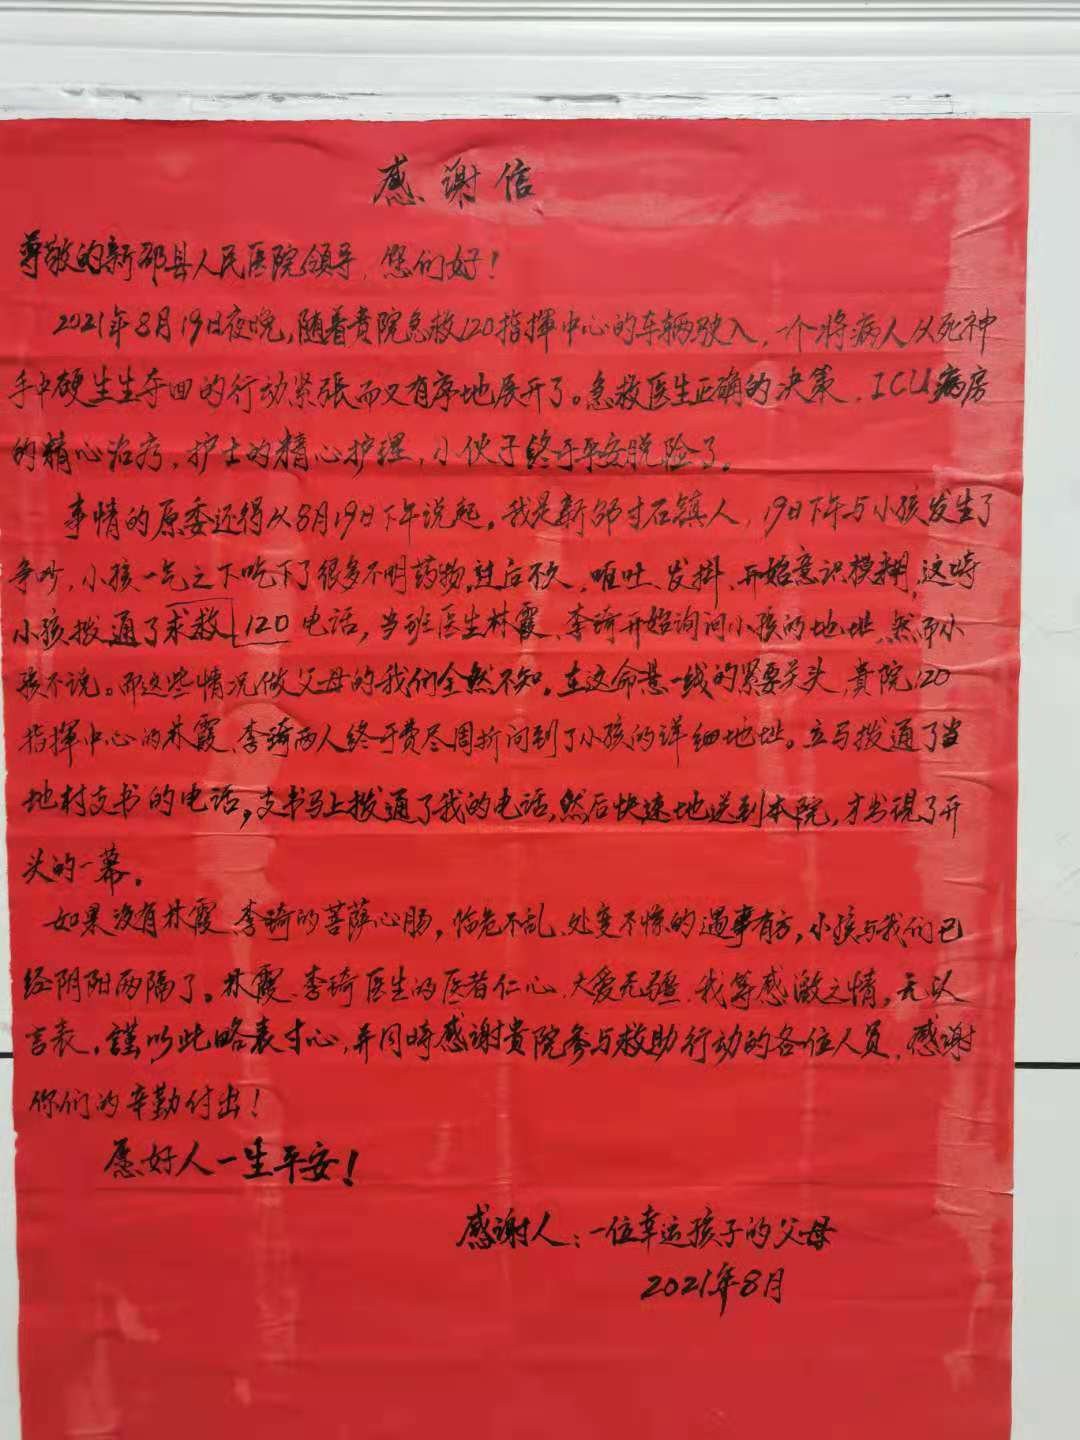 感谢信
尊敬的新邵县人民医院领导，您们好！
2021年8月19日夜晚，随着贵院急救120指揮中心的车辆驶入，一个将病人从死神
手中硬生生夺回的行动紧张而又有序地展开了。急救医生正确的决策，ICU病房
的精心治疗，护士的精心护理，小伙子终于平安脱险了。
事情的原委还得从8月19日下午说起。我是新邵寸石镇人，19日下午与小孩发生了
争吵，小孩一气之下吃下了很多不明药物，过后不久，呕吐、发抖、开始意识模糊，这时
小孩拨通了求救120电话，当班医生林霞、李琦开始询问小孩的地址，然而小
孩不说。而这些情况做父母的我们全然不知。在这命悬一线的紧要关头，貴院120
指揮中心的林霞、李琦两人终于费尽周折问到了小孩的详细地址。立马拨通了当
地村支书的电话，支书马上拨通了我的电话，然后快速地送到本院，才出现了开
头的一幕。
如果没有林霞、李琦的菩萨心肠，临危不乱、处变不惊的遇事有方，小孩与我们已
经阴阳两隔了。林霞、李琦医生的医者仁心、大爱无疆，我等感激之情，无以
言表，謹以此略表寸心，并同時感谢貴院参与救助行动的各位人员，感谢
你们的辛勤付出！
愿好人一生平安！
感谢人：一位幸运孩子的父母
2021年8月